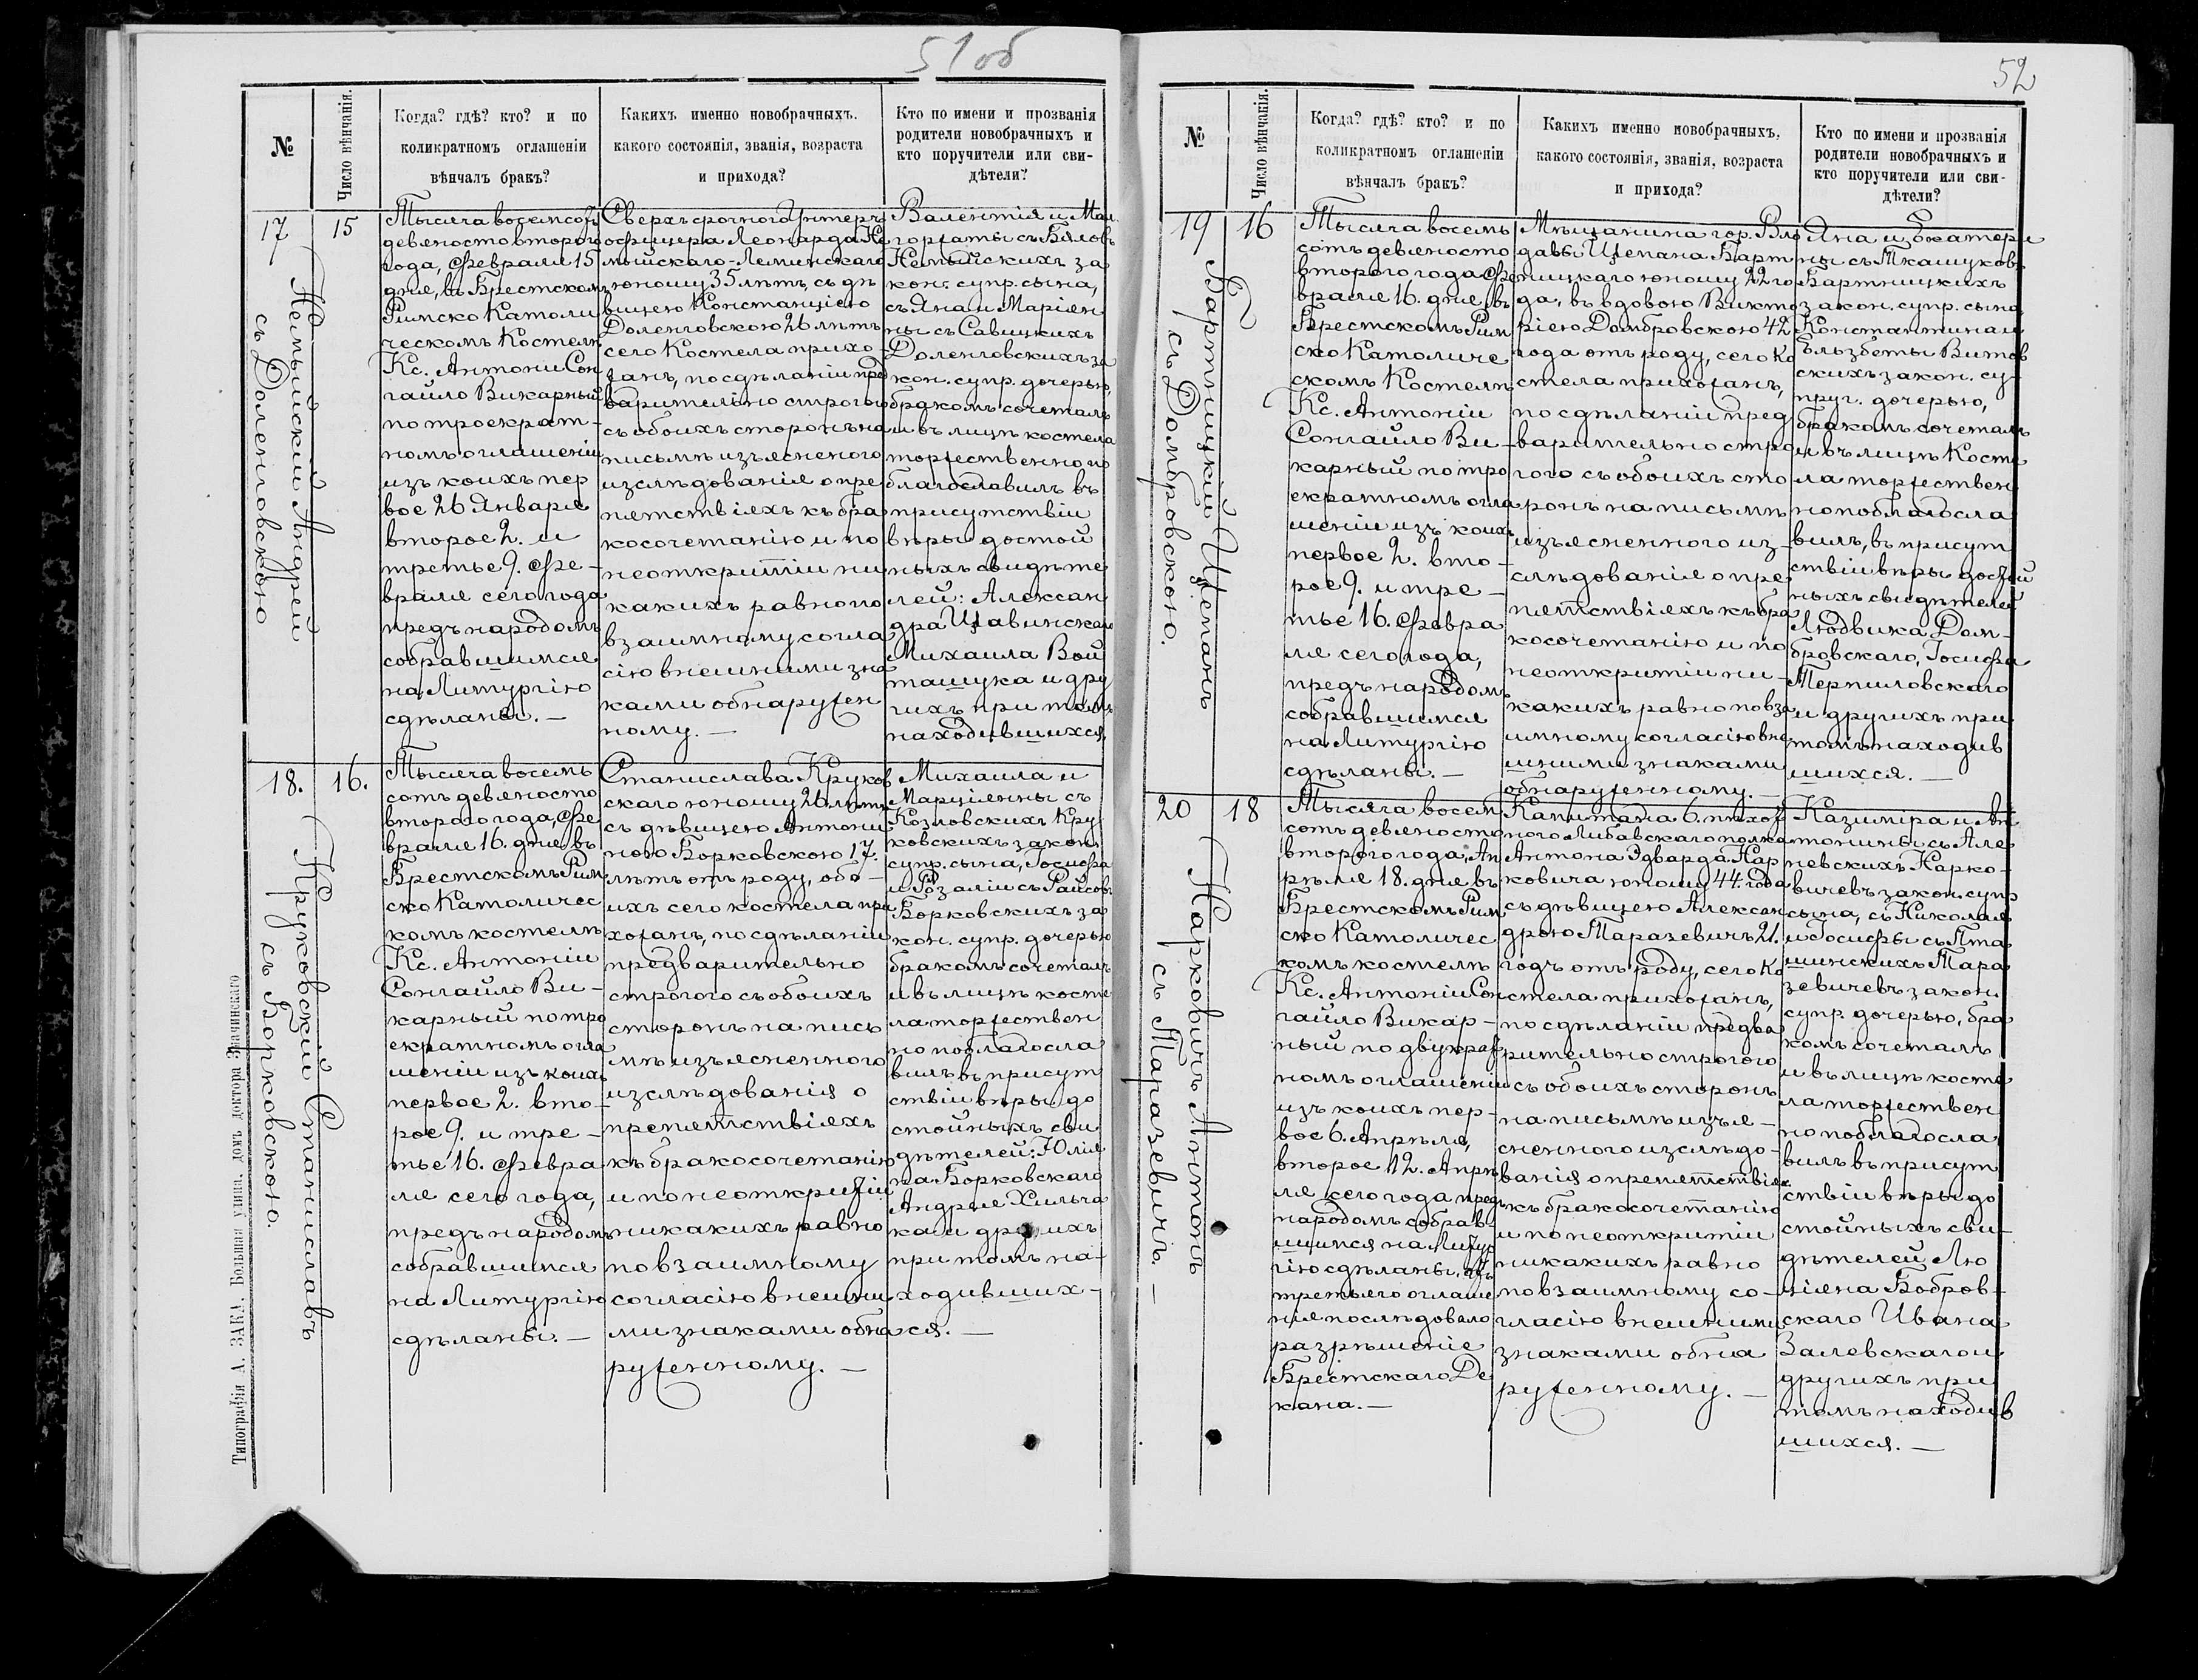 51 об
№
Число вѣнчанія.
Когда? гдѣ? кто? и по
коликратномъ оглашеніи
вѣнчалъ бракъ?
Какихъ именно новобрачныхъ.
какого состоянія, званія, возраста
и прихода?
Кто по имени и прозванія
родители новобрачныхъ и
кто поручители или сви-
дѣтели?
17
15
Немыйский Андрей
съ Доленговскою
Тысяча восемсотъ
девяносто второго
года, Февраля 15
дня, въ Брестскомъ
Римско Католи
ческомъ Костелѣ
Кс. Антоніи Сон
гайло Викарный
по троекрат-
номъ оглашеніи
изъ коихъ пер
вое 26 Января
второе 2. и
третье 9. Фе-
враля сего года
предъ народомъ
собравшимся
на Литургію
сдѣланы. —
Сверхсрочного Унтеръ
офицера Леонарда Не
мыйскаго-Леминскаго
юношу 35 лѣтъ, съ дѣ
вицею Констанціею
Доленговскою 26 лѣтъ
сего Костела прихо-
жанъ, по сдѣланіи пред
варительно строгого
съ обоихъ сторонъ на
письмѣ изъясненого
изслѣдованія о пре
пятствіяхъ къ бра
косочетанію и по
неоткрытіи ни
какихъ равно по
взаимному согла
сію внешними зна
ками обнаружен
ному. —
Валентія и Мал
горжаты съ Бяловъ
Немыйскихъ за
кон. супр. сына,
съ Яна и Маріян
ны съ Савицкихъ
Доленговскихъ за
кон. супр. дочерью,
бракомъ сочеталъ
и въ лицѣ костела
торжественно по
благославилъ въ
присутствіи
вѣры достой
ныхъ свидѣте
лей: Алексан
дра Щавинскаго
Михаила Вой
ташука и дру
гихъ при томъ
находившихся.
18.
16.
Круковский Станиславъ
съ Борковскою.
Тысяча восемъ
сотъ девяносто
второго года, Фе
враля 16. дня, въ
Брестскомъ Рим
ско Католичес
комъ костелѣ
Кс. Антоніи
Сонгайло Ви-
карный по тро
екратномъ огла
шеніи изъ коихъ
первое 2. вто-
рое 9. и тре-
тье 16. Февра
ля сего года,
предъ народомъ
собравшимся
на Литургію
сдѣланы. —
Станислава Круков
скаго юношу 26 лѣтъ
съ дѣвицею Антони
ною Борковскою 17.
лѣтъ отъ роду, обо-
ихъ сего костела при
хожанъ, по сдѣланіи
предварительно
строгого съ обоихъ
сторонъ на пись
мѣ изъясненного
изслѣдованія о
препятствіяхъ
къ бракосочетанію
и по неоткрытіи
никакихъ равно
по взаимному
согласію внешни
ми знаками обна
руженному. —
Михаила и
Марціянны съ
Козловскихъ Кру
ковскихъ закон.
супр. сына, Іосифа
и Розаліи съ Райсовъ
Борковскихъ за
кон. супр. дочерью
бракомъ сочеталъ
и въ лицѣ косте
ла торжествен
но поблагосла
вилъ въ присут
ствіи вѣры до
стойныхъ сви
дѣтелей: Юлія
на Борковскаго
Андрея Хильча
ка и другихъ
при томъ на-
ходивших-
ся. —
Типографія А. ЗАКА. Большая улица, домъ доктора Значинскаго
52
№
Число вѣнчанія.
Когда? гдѣ? кто? и по
коликратномъ оглашеніи
вѣнчалъ бракъ?
Какихъ именно новобрачныхъ,
какого состоянія, званія, возраста
и прихода?
Кто по имени и прозванія
родители новобрачныхъ и
кто поручители или сви-
дѣтели?
19
16
Бартницкій Щепанъ
съ Домбровскою.
Тысяча восемъ
сотъ девяносто
второго года Фе
враля 16. дня, въ
Брестскомъ Рим
ско Католиче
скомъ Костелѣ
Кс. Антоніи
Сонгайло Ви-
карный по тро
екратномъ огла
шеніи изъ коихъ
первое 2. вто-
рое 9. и тре-
тье 16. Февра
ля сего года,
предъ народомъ
собравшимся
на Литургію
сдѣланы. —
Мѣщанина гор. Вло
давы Щепана Барт
ницкаго юношу 22 го
да, въ вдовою Викто
ріею Домбровскою 42
года отъ роду, сего Ко
стела прихожанъ,
по сдѣланіи пред
варительно стро
гого съ обоихъ сто
ронъ на письмѣ
изъясненного из-
слѣдованія о пре
пятствіяхъ къ бра
косочетанію и по
неоткрытіи ни-
какихъ равно по вза
имному согласію вне
шними знаками
обнаруженному. —
Яна и Екатери
ны съ Ткашуковъ
Бартницкихъ
закон. супр. сына
Константина и
Ельзбеты Витов
скихъ закон. су-
пруг. дочерью,
бракомъ сочеталъ
и въ лицѣ Косте
ла торжествен
но поблагосла
вилъ, въ присут
ствіи вѣры достой
ныхъ свидѣтелей
Людвика Дом-
бровскаго, Іосифа
Терпиловскаго
и другихъ при
томъ находив
шихся. —
20
18
Нарковичъ Антонъ
съ Таразевичъ. —
Тысяча восем
сотъ девяносто
второго года, Ап
рѣля 18. дня въ
Брестскомъ Рим
ско Католичес
комъ костелѣ
Кс. Антоніи Сон
гайло Викар-
ный по двукрат
номъ оглашеніи
изъ коихъ пер-
вое 6. Апрѣля,
второе 12. Апрѣ
ля сего года предъ
народомъ собрав-
шимся на Литур
гію сдѣланы, отъ
третьего оглаше
нія послѣдовало
разрѣшеніе
Брестскаго Де
кана. —
Капитана 6. пѣхот
ного Либавскаго полка
Антона Эдварда Нар
ковича юношу 44. года
съ дѣвицею Алексан
дрою Таразевичъ 21.
годъ отъ роду, сего Ко
стела прихожанъ,
по сдѣланіи предва
рительно строгого
съ обоихъ сторонъ
на письмѣ изъя-
сненного изслѣдо-
ванія о препятствіях
къ бракосочетанію
и по неоткрытіи
никакихъ равно
по взаимному со-
гласію внешними
знаками обна
руженному. —
Казиміра и Ан
тонины съ Але
невскихъ Нарко-
вичевъ закон. супр
сына, съ Николая
и Іосифы съ Пта
шинскихъ Тара
зевичевъ закон.
супр. дочерью, бра
комъ сочеталъ
и въ лицѣ косте
ла торжествен
но поблагосла
вилъ въ присут
ствіи вѣры до
стойныхъ сви-
дѣтелей, Лю
ціяна Бобров-
скаго Ивана
Залевскаго и
другихъ при
томъ находив
шихся. —